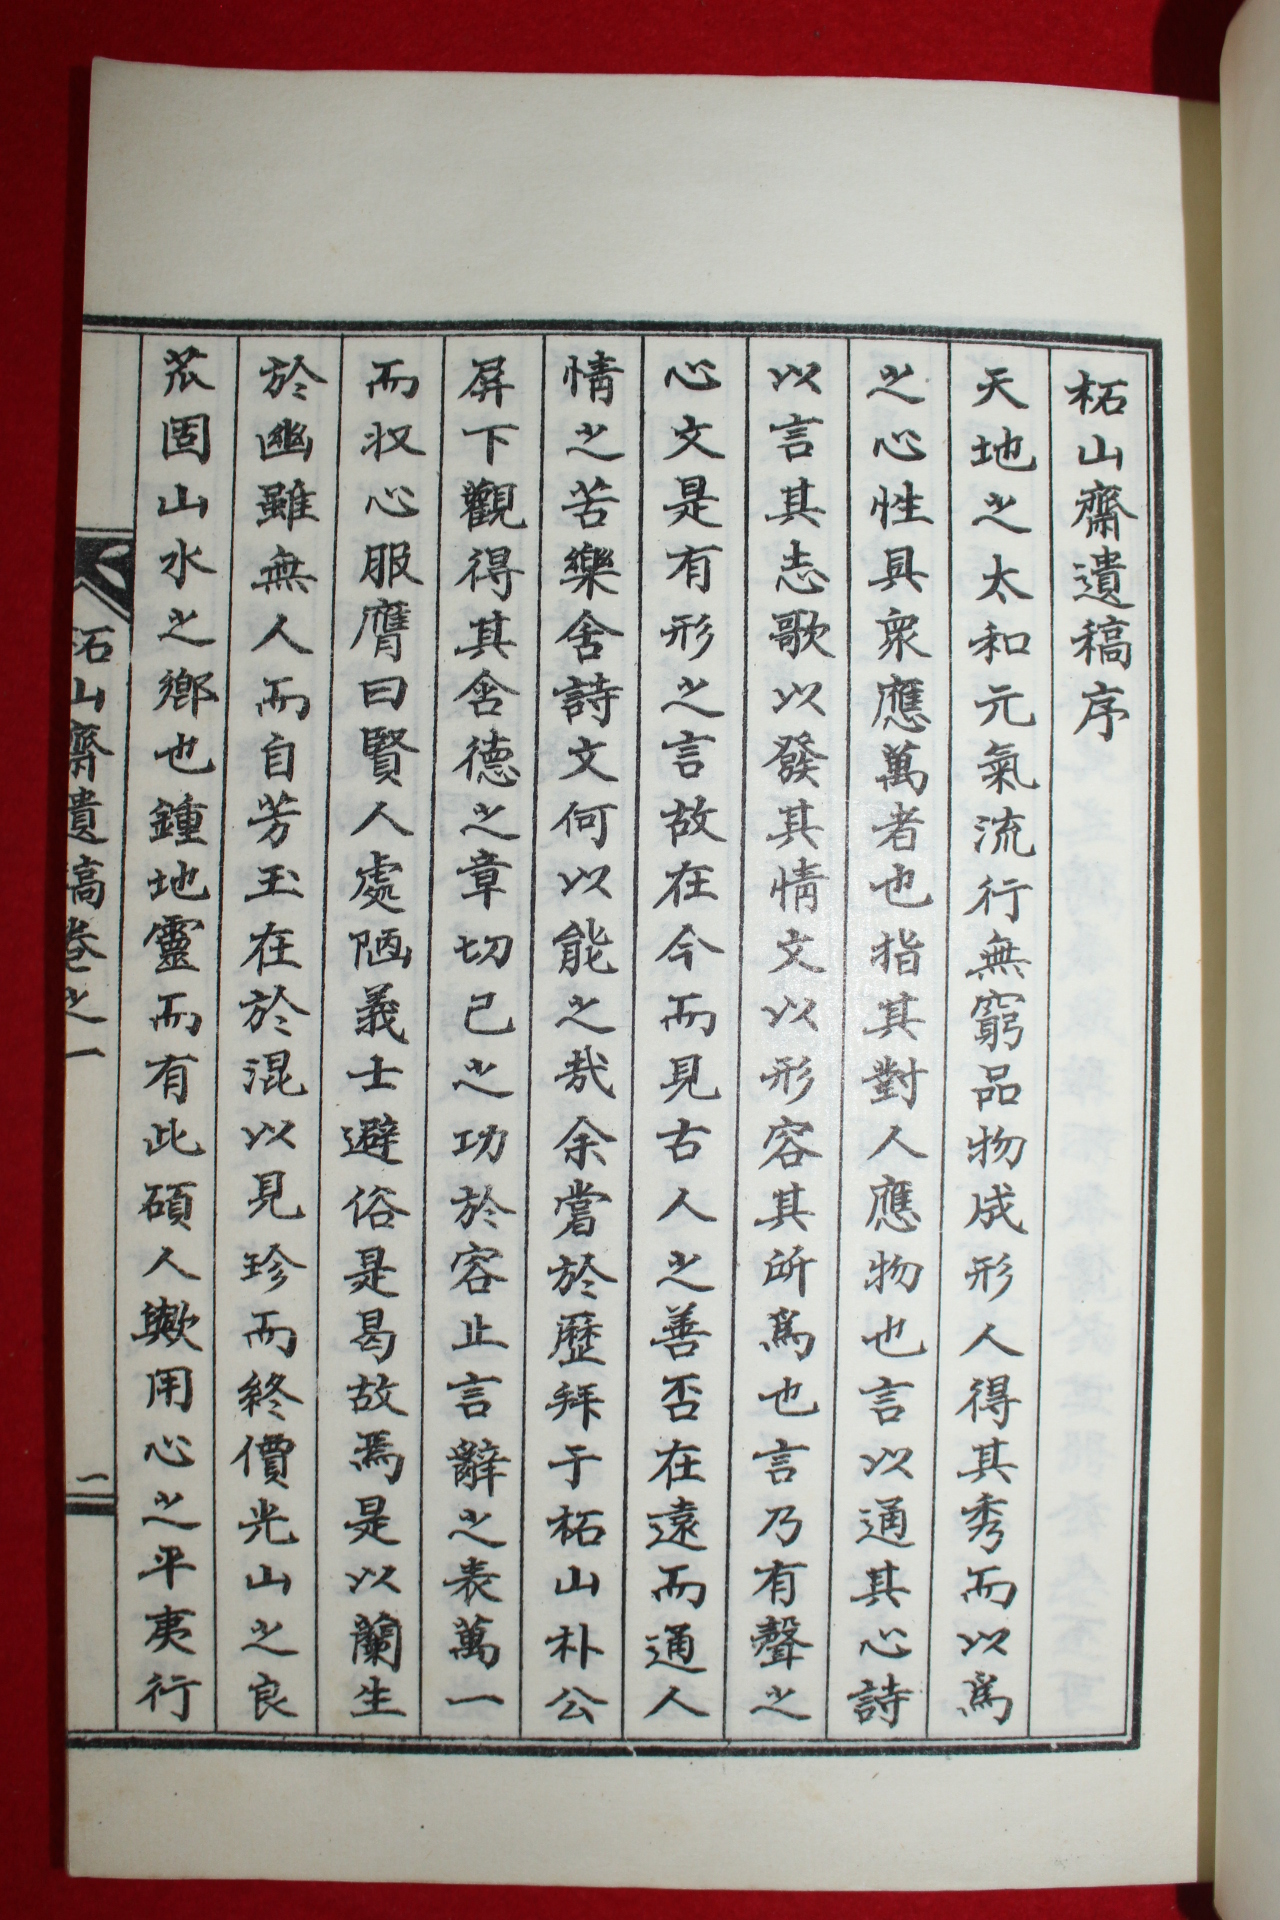 柘山齋遺稿序
天地之太和元氣流行無窮品物成形人得其秀而以爲
之心性具衆應萬者也指其對人應物也言以通其心詩
以言其志歌以發其情文以形容其所爲也言乃有聲之
心文是有形之言故在今而見古人之善否在遠而通人
情之苦樂舍詩文何以能之哉余嘗於歷拜于柘山朴公
屛下觀得其含德之章切己之功於容止言辭之表萬一
而收心服膺曰賢人處陋義士避俗是曷故焉是以蘭生
於幽雖無人而自芳玉在於混以見珍而終價光山之良
苽固山水之鄕也鍾地靈而有此碩人歟用心之平夷行
柘山齋遺稿卷之一
一